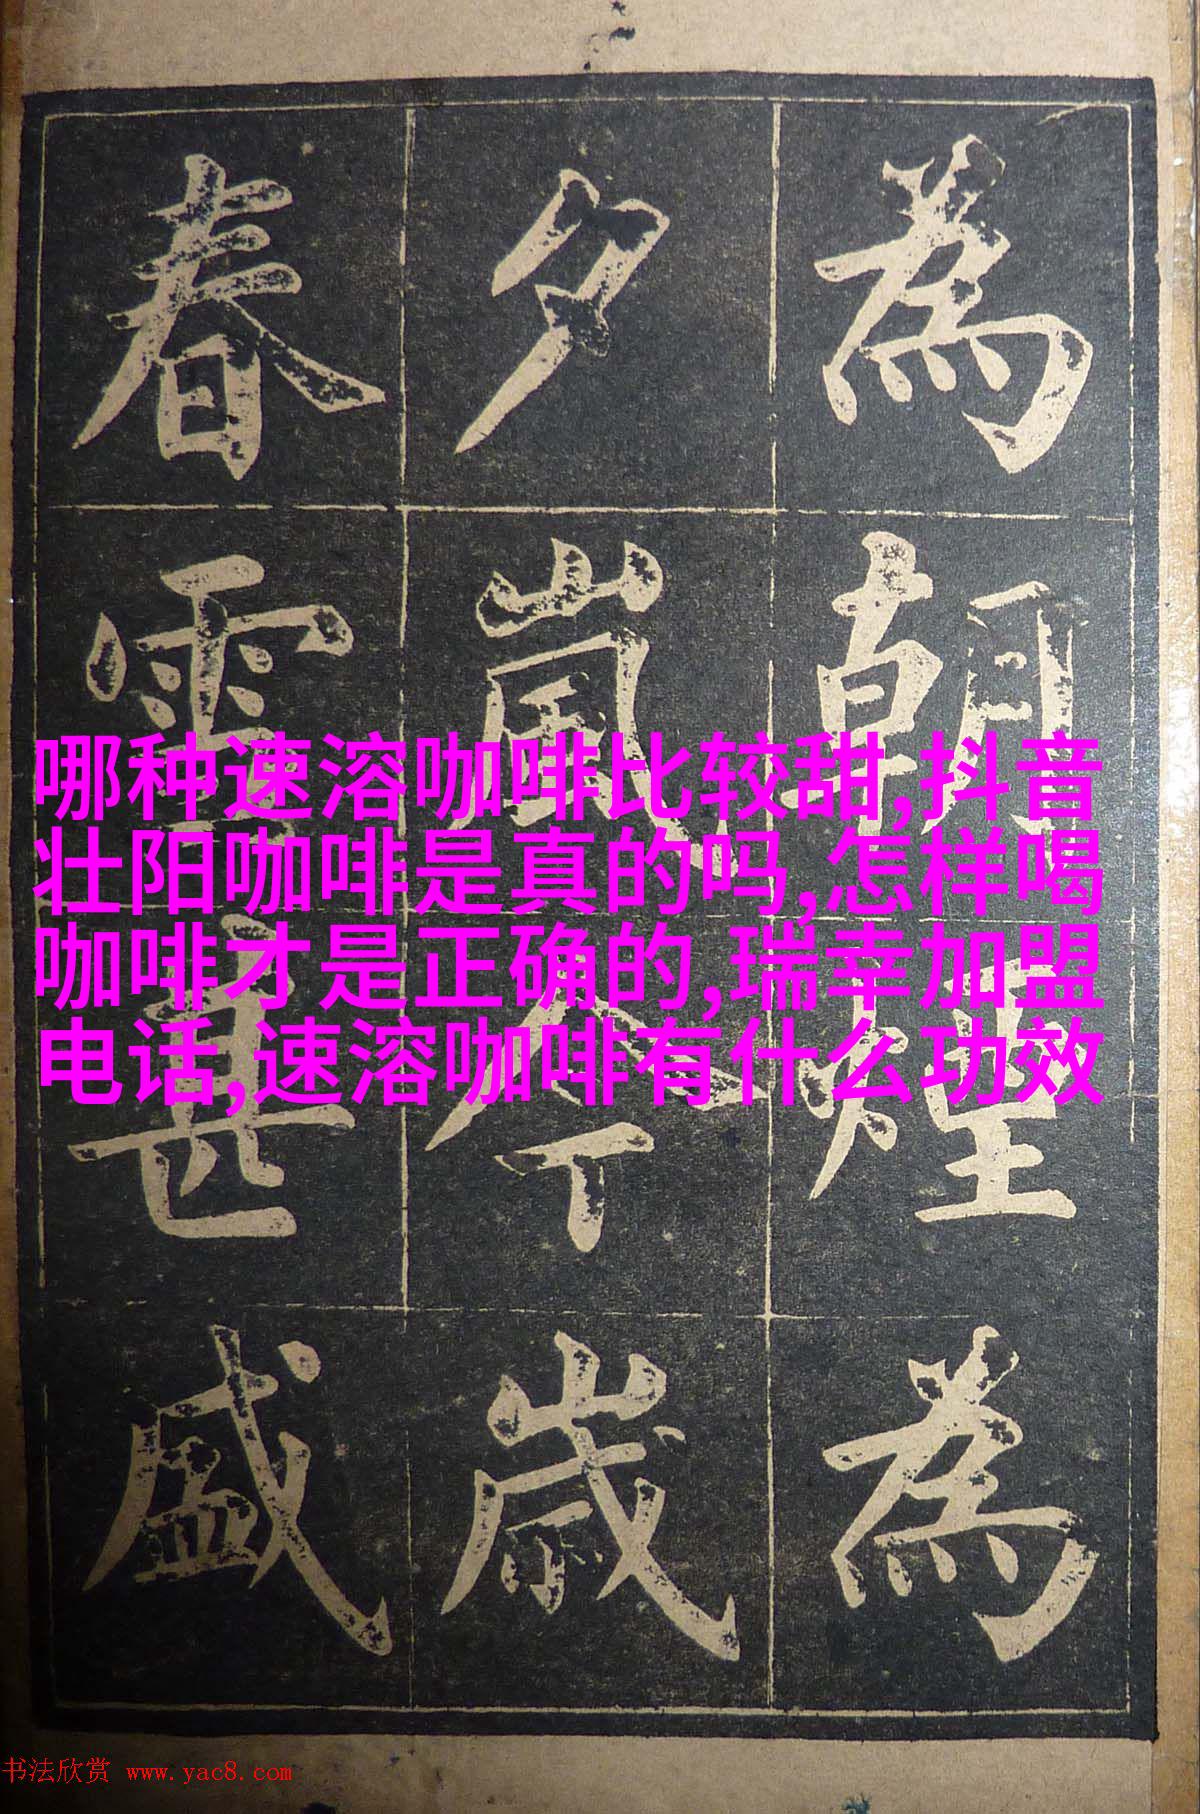 為朝煙為
夕嵐今歲
春雪甚盛
哪种速溶咖啡比较甜,抖音
壮阳咖啡是真的吗,怎样喝
咖啡才是正确的,瑞幸加盟
电话,速溶咖啡有什么功效
书法欣赏 www.yac8.com